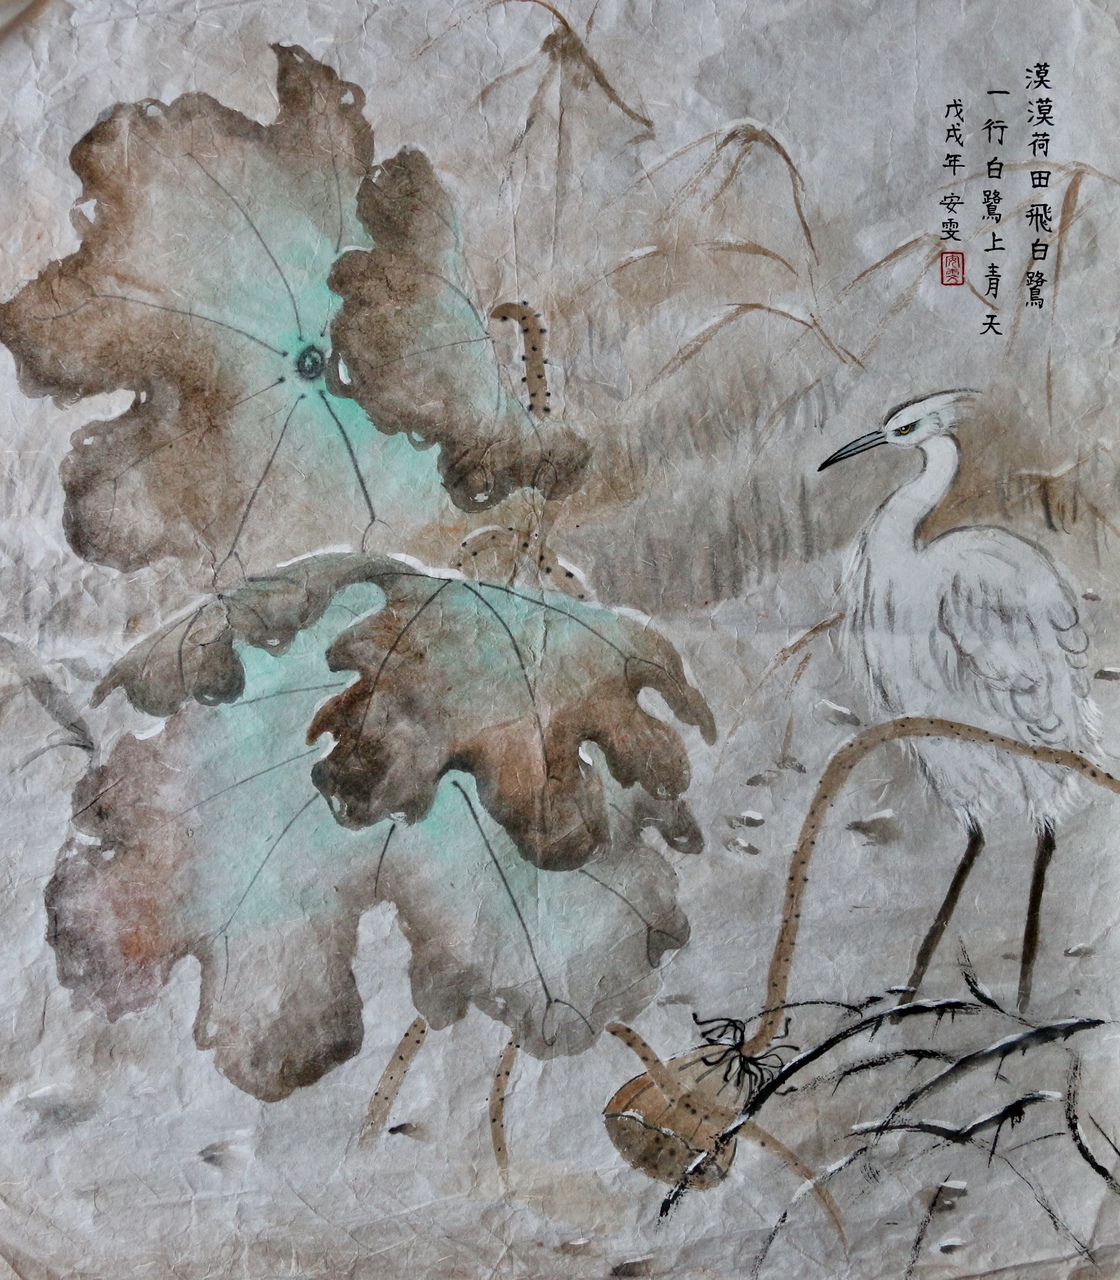 漠漠荷田飛白鷺
一行白鷺上青天
戊戌年 安雯
安雯